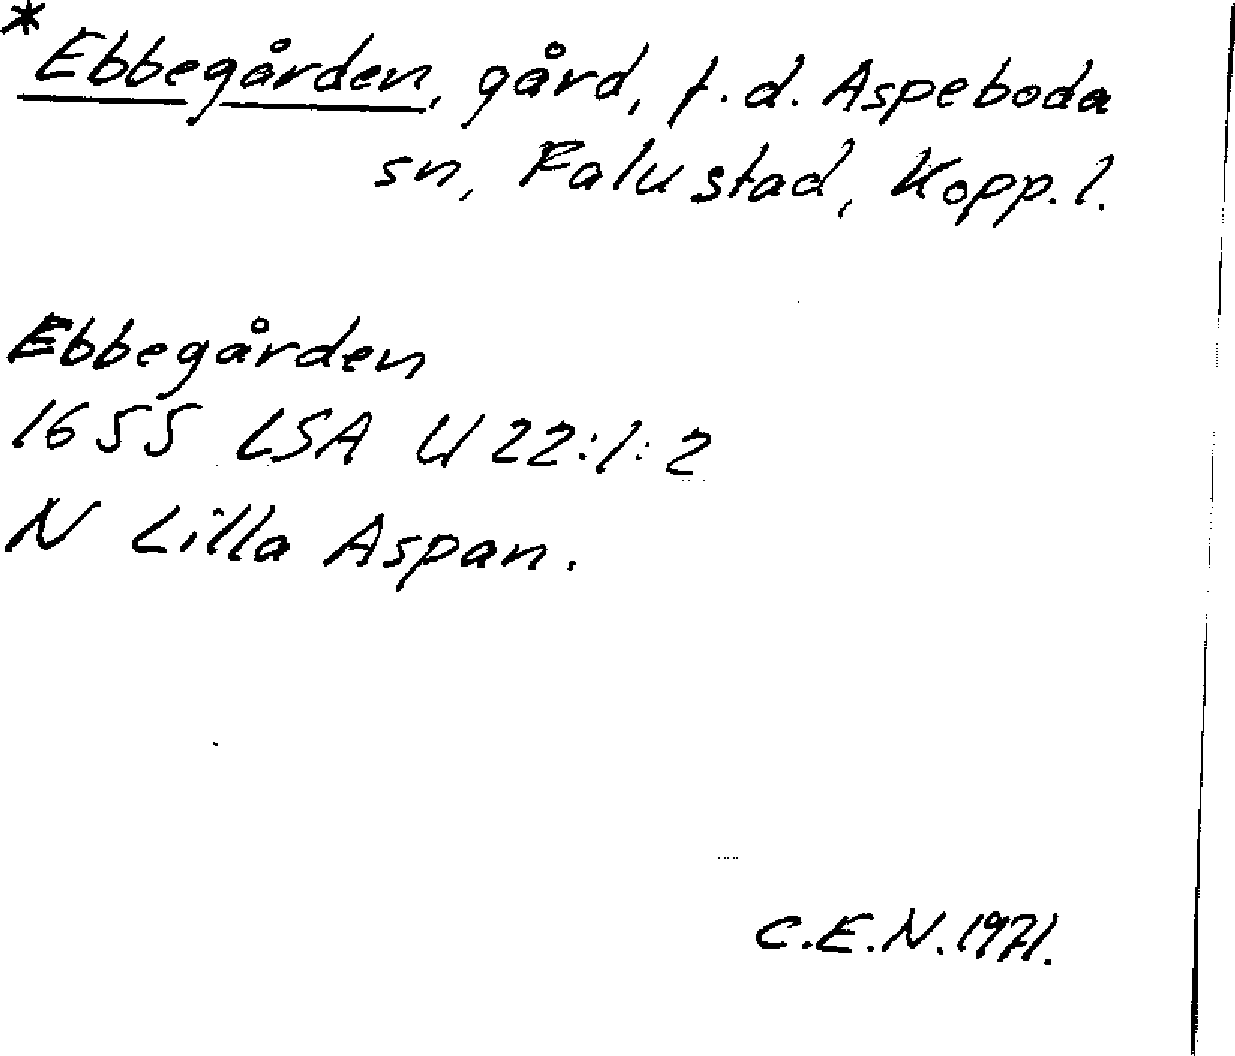 *Ebbegården, gård, f.d. Aspeboda
sn, Falu stad, Kopp. l.
Ebbegården
1655 LSA U 22:1:2
N Lilla Aspan.
C.E.N. 1971.